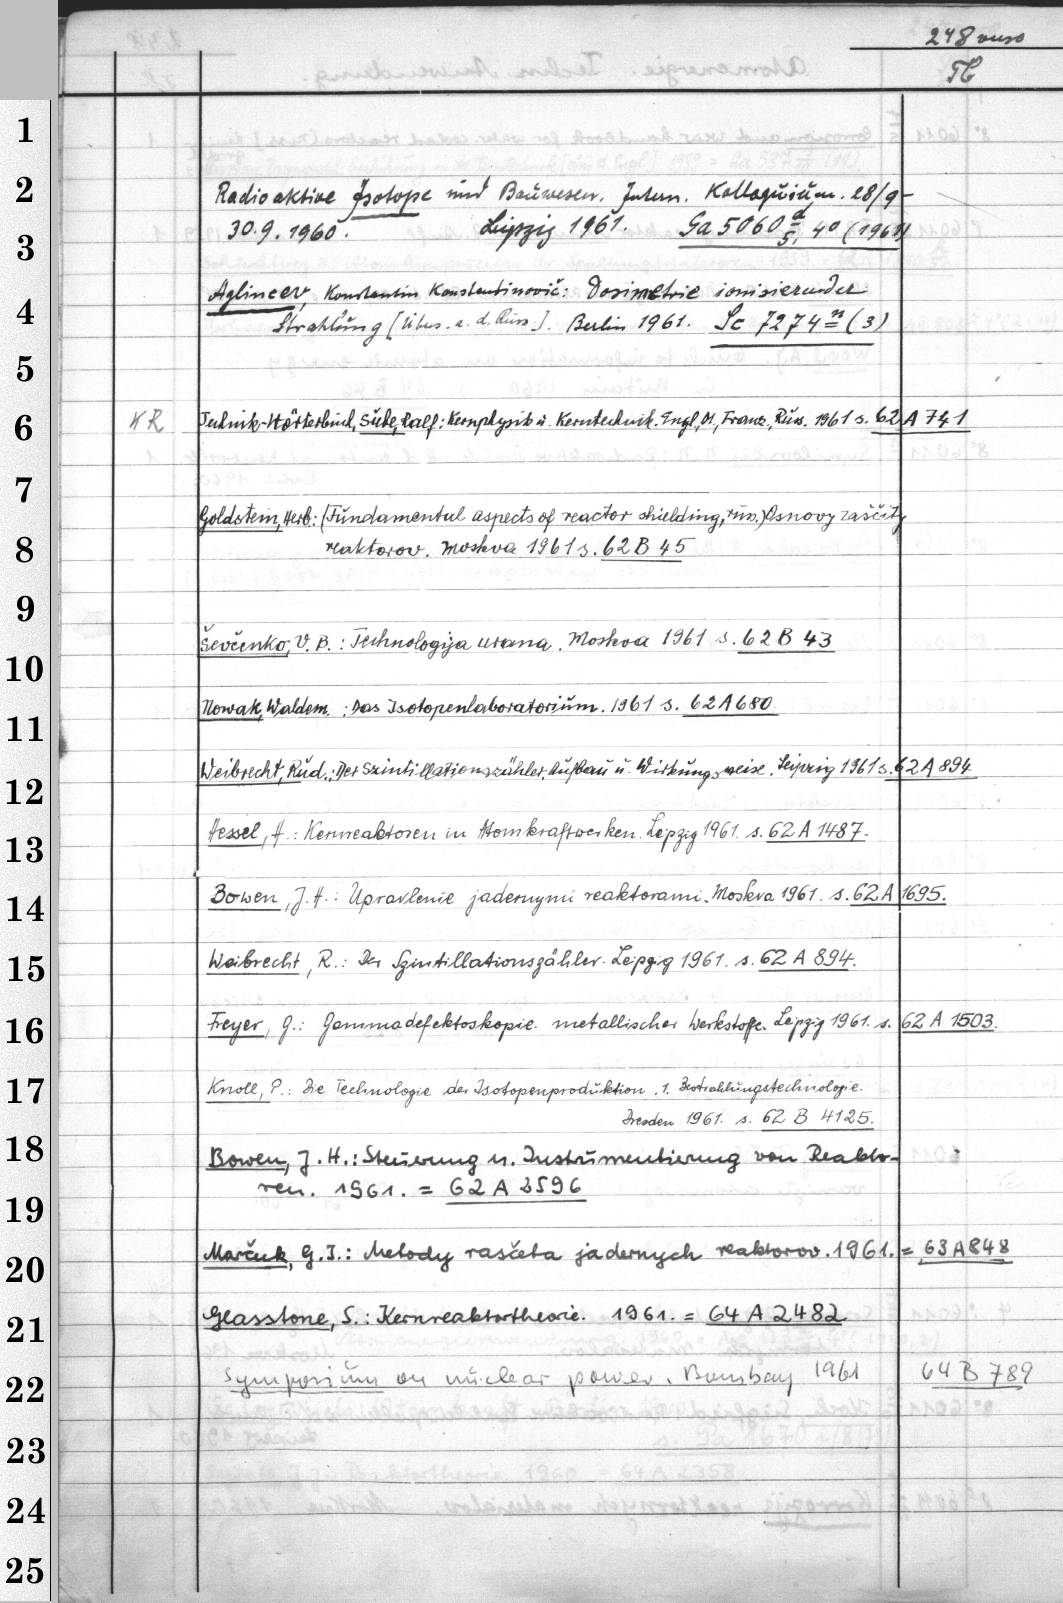 248 verso
TC
1
2 Radioaktive Isotope und Bauwesen. Intern. Kolloquium. 28/9-
3 30.9.1960. Leipzig 1961. Ga 5060 d/5, 4° (1961)
4 Aglincev, Konstantin Konstantinovič: Dosimetrie ionisierender
Strahlung [Übers. a. d. Russ.]. Berlin 1961. Sc 7274 n (3)
5
6 KR Technik-Wörterbuch, Sube, Ralf: Kernphysik u. Kerntechnik. Engl., Dt., Franz., Russ. 1961 s. 62 A 741
7
Goldstein, Herb.: (Fundamental aspects of reactor shielding, russ.) Osnovy zaščity
8 reaktorov. Moskva 1961 s. 62 B 45
9
10 Ševčenko, V. B.: Technologija urana. Moskva 1961 s. 62 B 43
11 Nowak, Waldem.: Das Isotopenlaboratorium. 1961 s. 62 A 680
12 Weibrecht, Rud.: Der Szintillationszähler. Aufbau u. Wirkungsweise. Leipzig 1961 s. 62 A 894
13 Hessel, H.: Kernreaktoren in Atomkraftwerken. Leipzig 1961. s. 62 A 1487.
14 Bowen, J. H.: Upravlenie jadernymi reaktorami. Moskva 1961. s. 62 A 1695.
15 Weibrecht, R.: Der Szintillationszähler. Leipzig 1961. s. 62 A 894.
16 Freyer, G.: Gammadefektoskopie metallischer Werkstoffe. Leipzig 1961. s. 62 A 1503.
17 Knoll, P.: Die Technologie der Isotopenproduktion. 1. Bestrahlungstechnologie.
Dresden 1961. s. 62 B 4125.
18 Bowen, J. H.: Steuerung u. Instrumentierung von Reakto-
19 ren. 1961. = 62 A 2596
20 Marčuk, G. I.: Metody rasčeta jadernych reaktorov. 1961. = 63 A 848
21 Glasstone, S.: Kernreaktortheorie. 1961. = 64 A 2482
22 Symposium on nuclear power. Bombay 1961 64 B 789
23
24
25